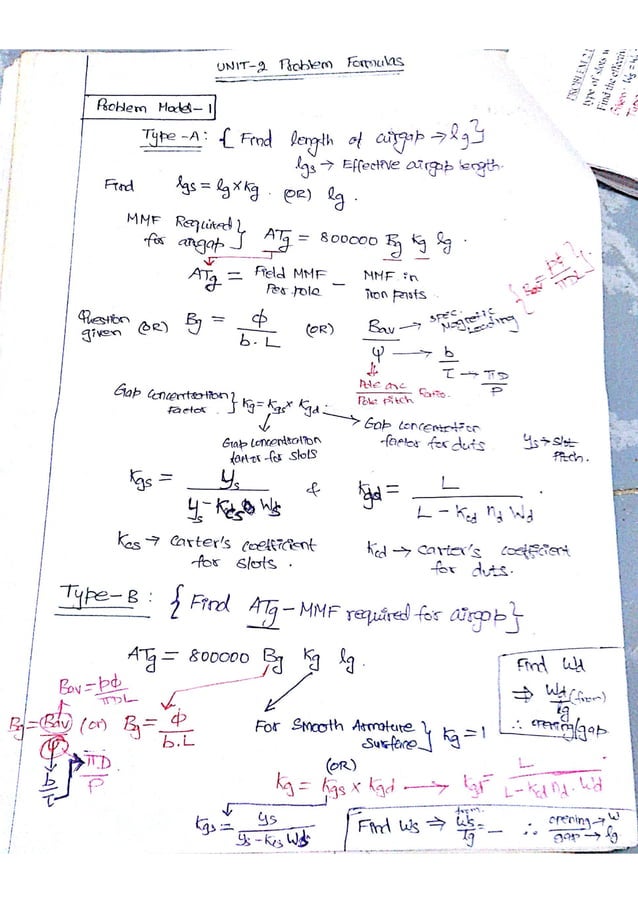 UNIT-2 Problem Formulas
Problem Model-1
Type-A: { Find length of airgap → lg }
lgs → Effective airgap length.
Find lgs = lg × Kg. (OR) lg.
MMF Required for airgap } ATg = 800000 Bg Kg lg.
ATg = Field MMF Per pole − MMF in iron parts
{ Bav = pϕ/πDL }
Question given (OR) Bg = ϕ/b.L (OR) Bav/ψ
Bav → Spec. Magnetic Loading
ψ → b/τ → πD/P
Pole arc/Pole pitch ratio.
Gap concentration factor } Kg = Kgs × Kgd.
Gap concentration factor for slots
Gap concentration factor for ducts.
ys → slot pitch.
Kgs = ys/ys − Kcs Ws & Kgd = L/L − Kcd nd Wd
Kcs → Carter's coefficient for slots.
Kcd → Carter's coefficient for ducts.
Type-B : { Find ATg − MMF required for airgap }
ATg = 800000 Bg Kg lg.
Bav = pϕ/πDL
Bg = Bav/ψ (or) Bg = ϕ/b.L
b/τ → πD/P
For Smooth Armature Surface } Kg = 1
(OR)
Kg = Kgs × Kgd → Kgd = L/L − Kcd nd. Wd
Kgs = ys/ys − Kcs Ws
Find Wd
⇒ Wd/lg (from)
∴ opening/gap
Find Ws ⇒ from Ws/lg = — ∴ opening → W/gap → lg
PROBLEM 2.
type of slots